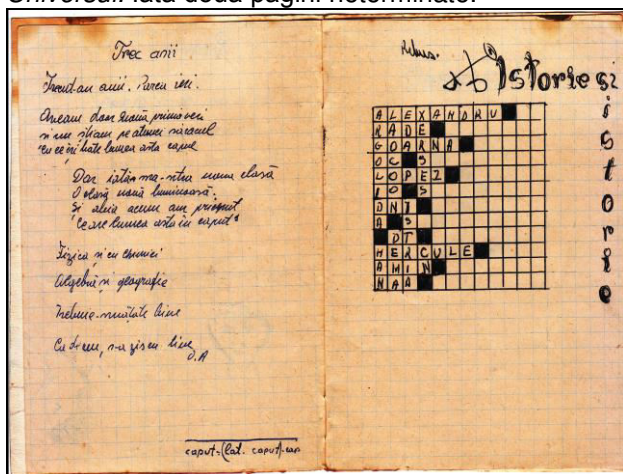 Universal. Iată două pagini neterminate.
Trec anii
Trecut-au anii. Parcă ieri.
Aveam doar nouă primăveri
și nu știam pe atunci săracul
cu ce își bate lumea asta capul
Dar iată-mă-ntra noua clasă
O clasă nouă luminoasă.
Și abia acum am priceput
Ce are lumea asta în caput¹
Fizica și cu chimici
Algebră și geografie
Trebuie-nvățate bine
Cu bine
D.A
caput-(lat. caput)-cap
Rebus.
Istorie și
istorie
ALEXANDRU
RADE
GOARNA
OC S
LOPEZ
IO S
DNI
A S
DT
HERCULE
AMIN
NAA